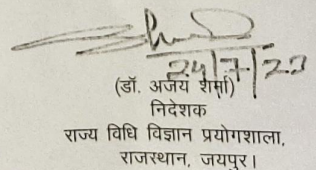 24/7/23
(डॉ. अजय शर्मा)
निदेशक
राज्य विधि विज्ञान प्रयोगशाला,
राजस्थान, जयपुर।